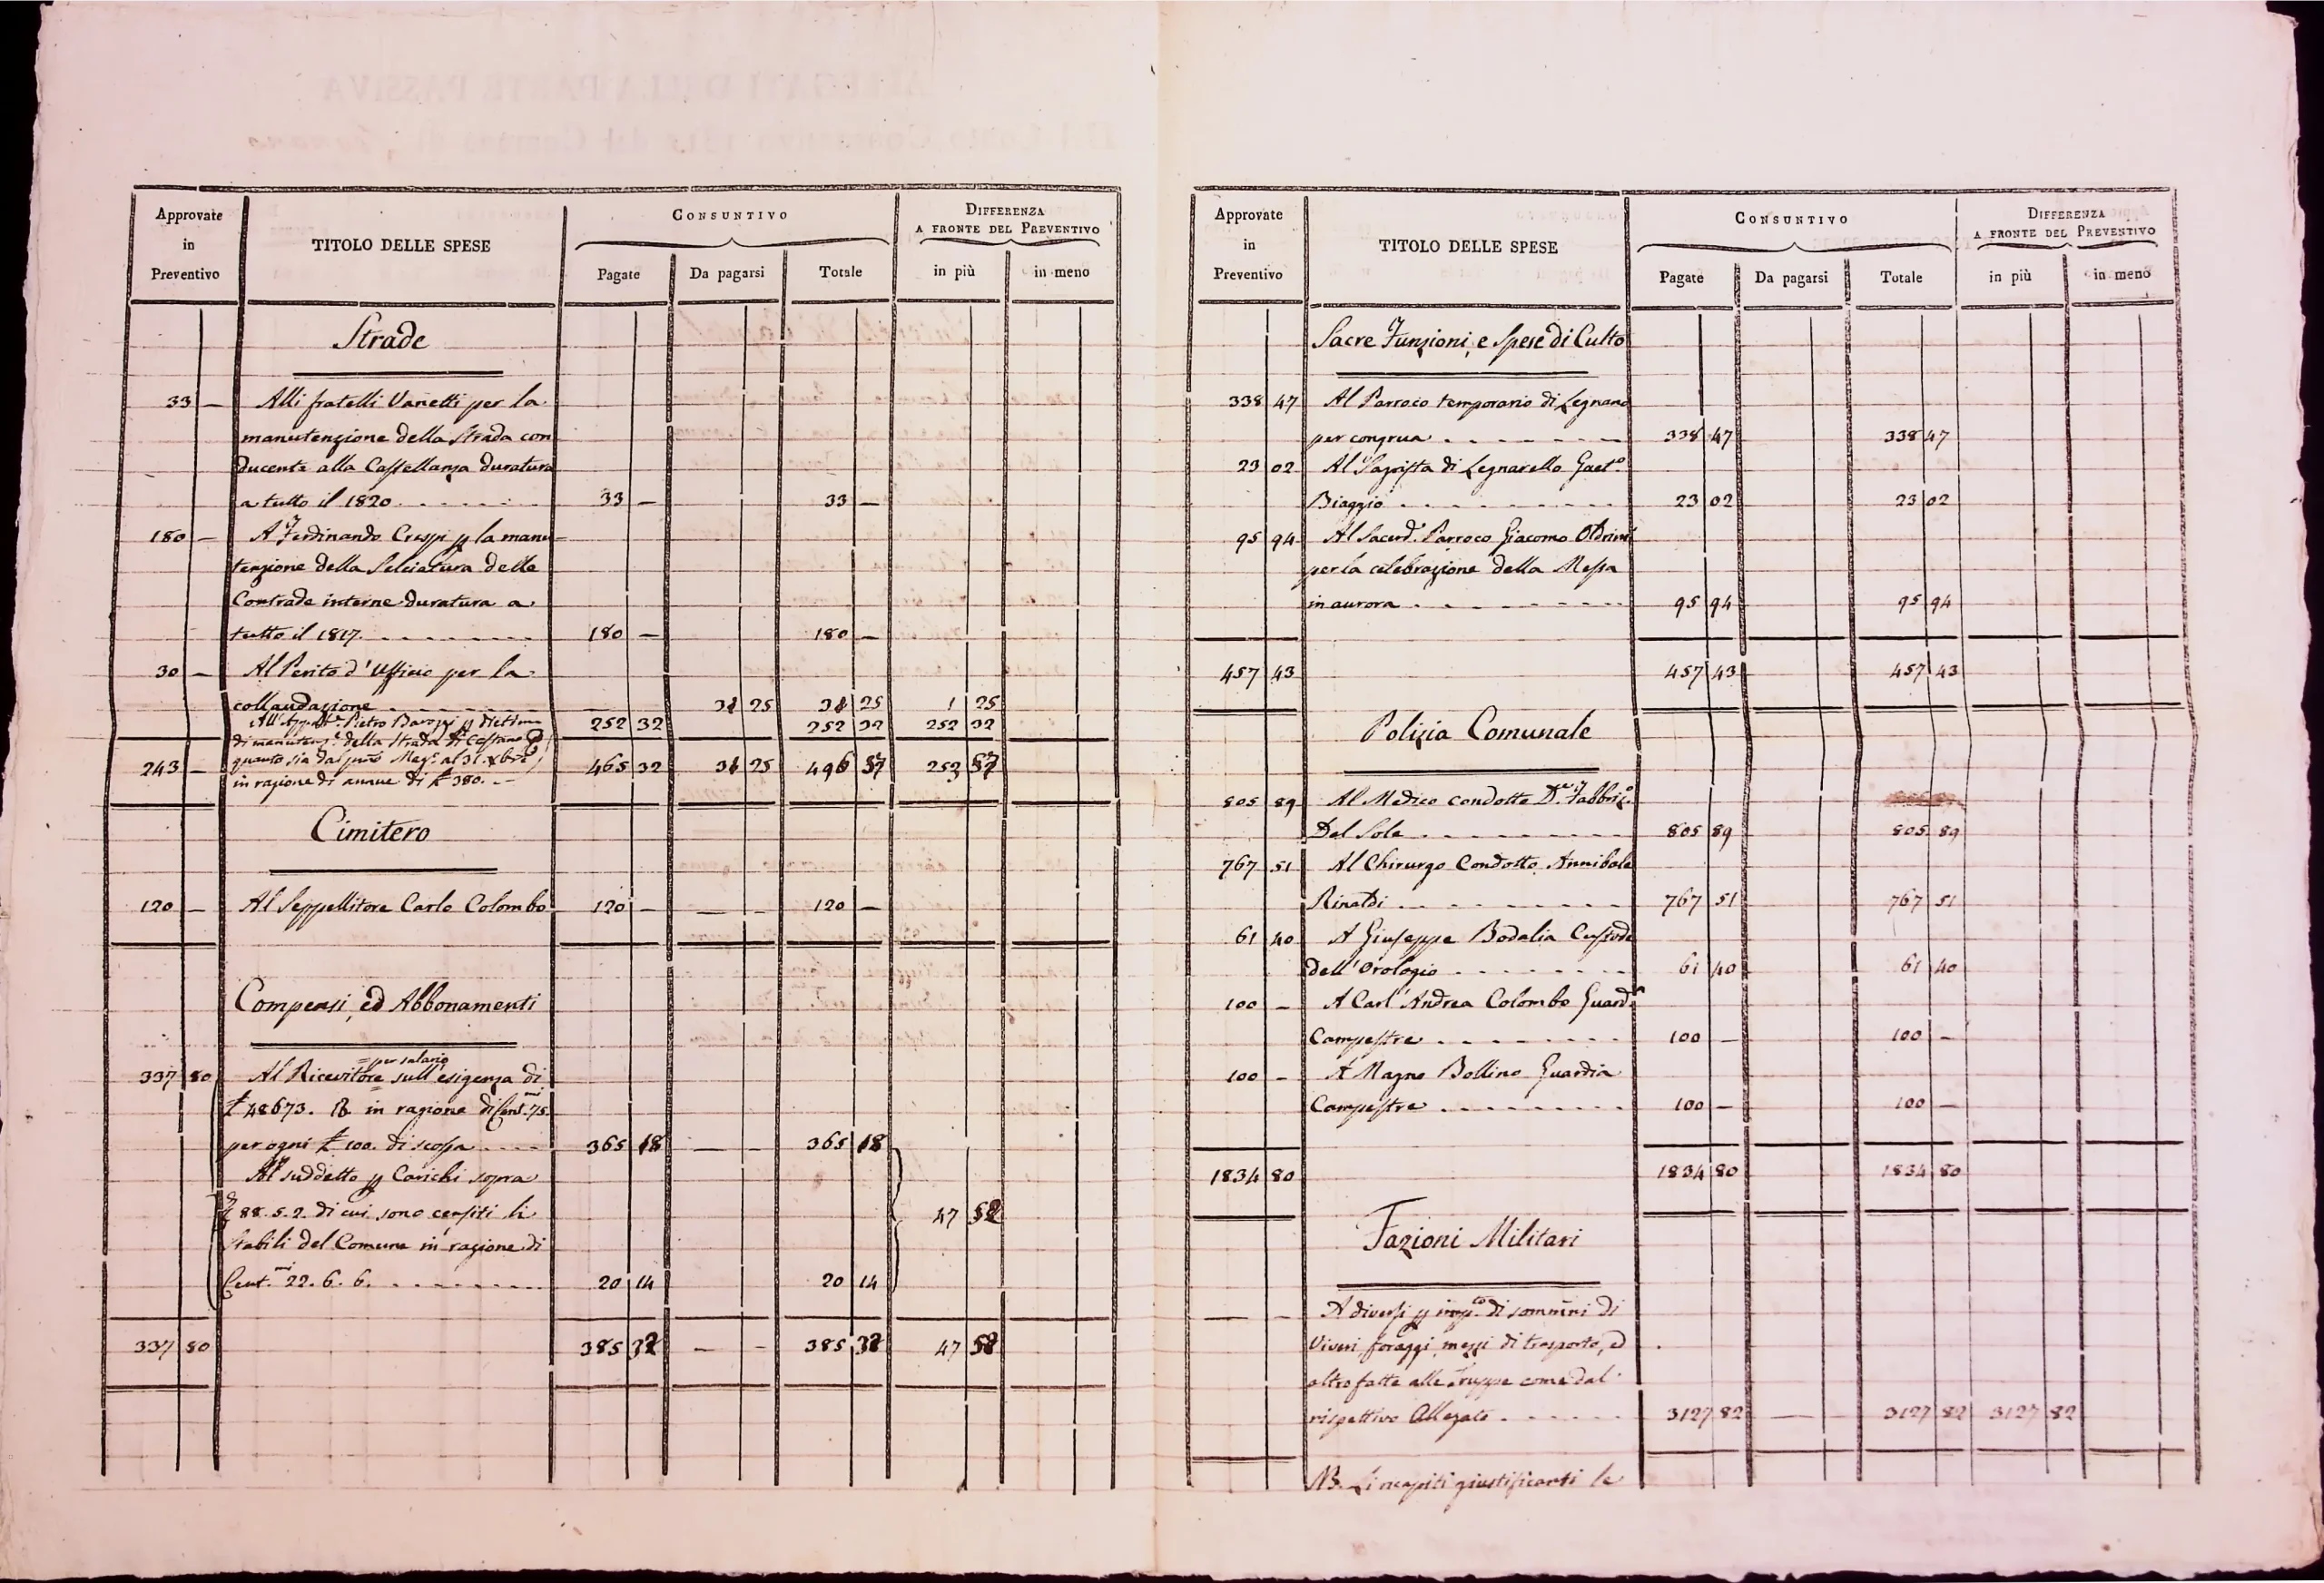 Approvate in Preventivo
TITOLO DELLE SPESE
CONSUNTIVO
DIFFERENZA A FRONTE DEL PREVENTIVO
Pagate Da pagarsi Totale in più in meno
Strade
33 — Alli fratelli Vanetti per la
manutenzione della Strada con
ducente alla Castellanza duratura
a tutto il 1820 . . . . . . 33 — 33 —
180 — A Ferdinando Crespi p la manu-
tenzione della Selciatura delle
Contrade interne duratura a
tutto il 1817. . . . . . . . 180 — 180 —
30 — Al Perito d'Ufficio per la
collaudazione . . . . . . . 31 25 31 25 1 25
All'Appalt.e Pietro Barozzi p dietim 252 32 252 32 252 32
di manutenz.e della Strada di Castano p
243 — quanto sia dal p.mo Mag.o al 31 xbre 465 32 31 25 496 57 253 57
in ragione di annue di £ 380. —
Cimitero
120 — Al Seppellitore Carlo Colombo 120 — — - 120 —
Compensi, ed Abbonamenti
= per salario
337 80 Al Ricevitore sull'esigenza di
£ 48673. in ragione di Cent.mi 75.
per ogni £ 100. di scossa . . . . 365 18 — - 365 18
Al suddetto p Carichi sopra
88. 5. 2. di cui sono censiti li 47 52
Stabili del Comune in ragione di
Cent.mi 22. 6. 6. . . . . . . . . 20 14 20 14
337 80 385 32 — - 385 32 47 52
Approvate in Preventivo
TITOLO DELLE SPESE
CONSUNTIVO
DIFFERENZA A FRONTE DEL PREVENTIVO
Pagate Da pagarsi Totale in più in meno
Sacre Funzioni, e Spese di Culto
338 47 Al Parroco temporario di Legnano
per congrua . . . . . . . 338 47 338 47
23 02 Al Sagrista di Legnarello Gaet.o
Biaggio . . . . . . . . 23 02 23 02
95 94 Al Sacerd.e Parroco Giacomo Oldrini
per la celebrazione della Messa
in aurora . . . . . . . . 95 94 95 94
457 43 457 43 457 43
Polizia Comunale
805 89 Al Medico condotto D.r Fabbriz.o
Dal Sole . . . . . . . . 805 89 805 89
767 51 Al Chirurgo Condotto Annibale
Rinaldi . . . . . . . . . 767 51 767 51
61 40 A Giuseppe Bodalia Custode
dell'Orologio . . . . . . . 61 40 61 40
100 — A Carl'Andrea Colombo Guard.a
Campestre . . . . . . . . 100 — 100 —
100 — A Magno Bollino Guardia
Campestre . . . . . . . . 100 — 100 —
1834 80 1834 80 1834 80
Fazioni Militari
— - A diversi p imp.to di sommini di
Viveri, foraggi, mezzi di trasporto, ed
altro fatte alle Truppe come dal
rispettivo Allegato . . . . . . 3127 82 — 3127 82 3127 82
NB. Li recapiti giustificanti le